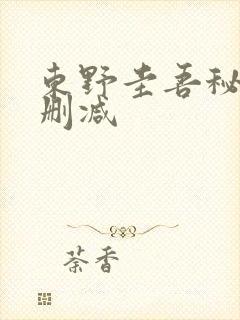 東野圭吾秘
删减
荼香